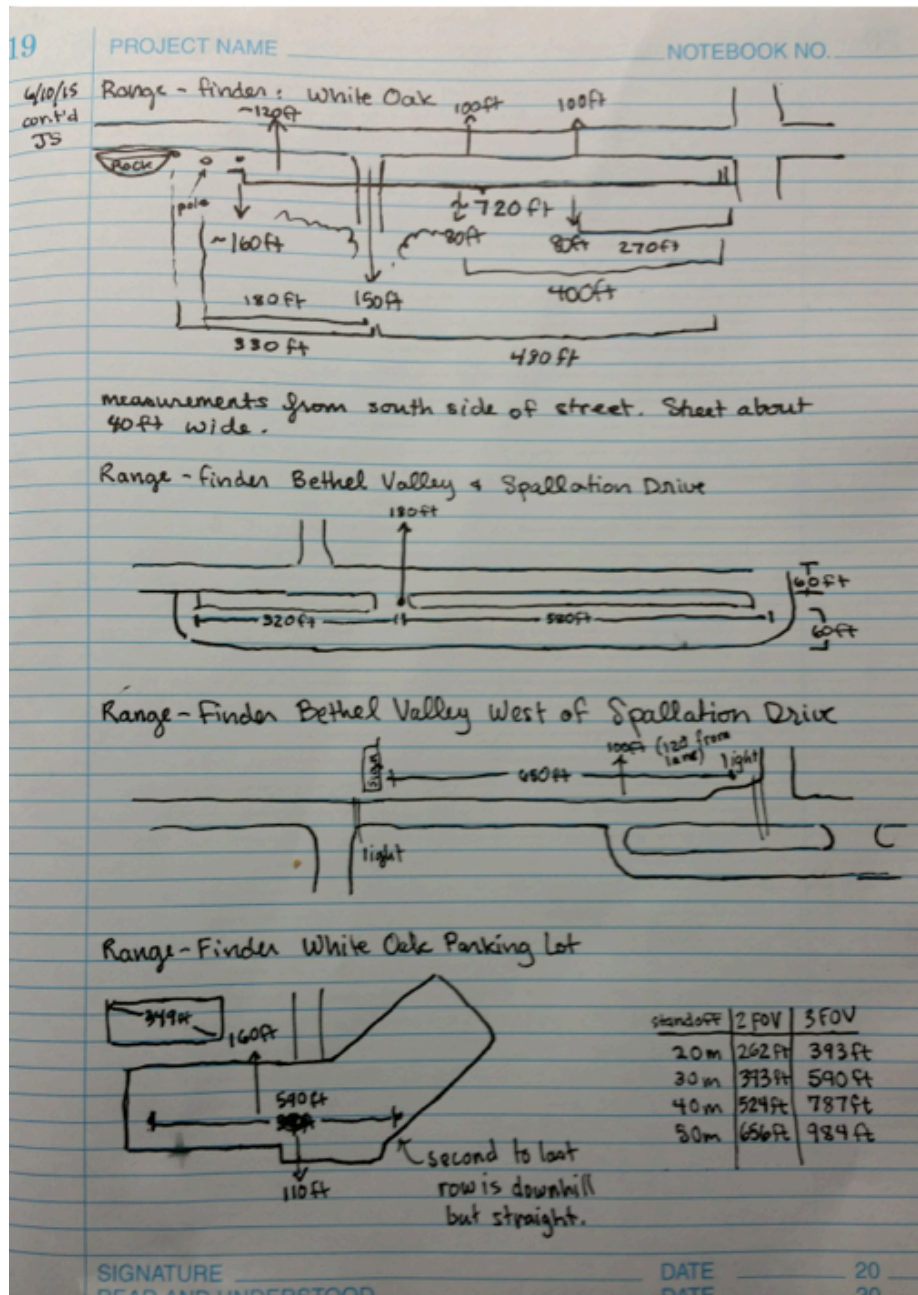 19
PROJECT NAME
NOTEBOOK NO.
6/10/15
cont'd
JS
Range-finder: White Oak
~120ft
100ft
100ft
Rock
pole
720ft
~160ft
80ft
80ft
270ft
400ft
180ft
150ft
330ft
480ft
measurements from south side of street. Street about
40ft wide.
Range-finder Bethel Valley & Spallation Drive
180ft
60ft
320ft
580ft
60ft
Range-Finder Bethel Valley West of Spallation Drive
100ft (120 from
lane)
light
sign
650ft
light
Range-Finder White Oak Parking Lot
349ft
160ft
590ft
110ft
second to last
row is downhill
but straight.
standoff 2 FOV 3 FOV
20m 262ft 393ft
30m 393ft 590ft
40m 524ft 787ft
50m 656ft 984ft
SIGNATURE
DATE
20
READ AND UNDERSTOOD
DATE
20